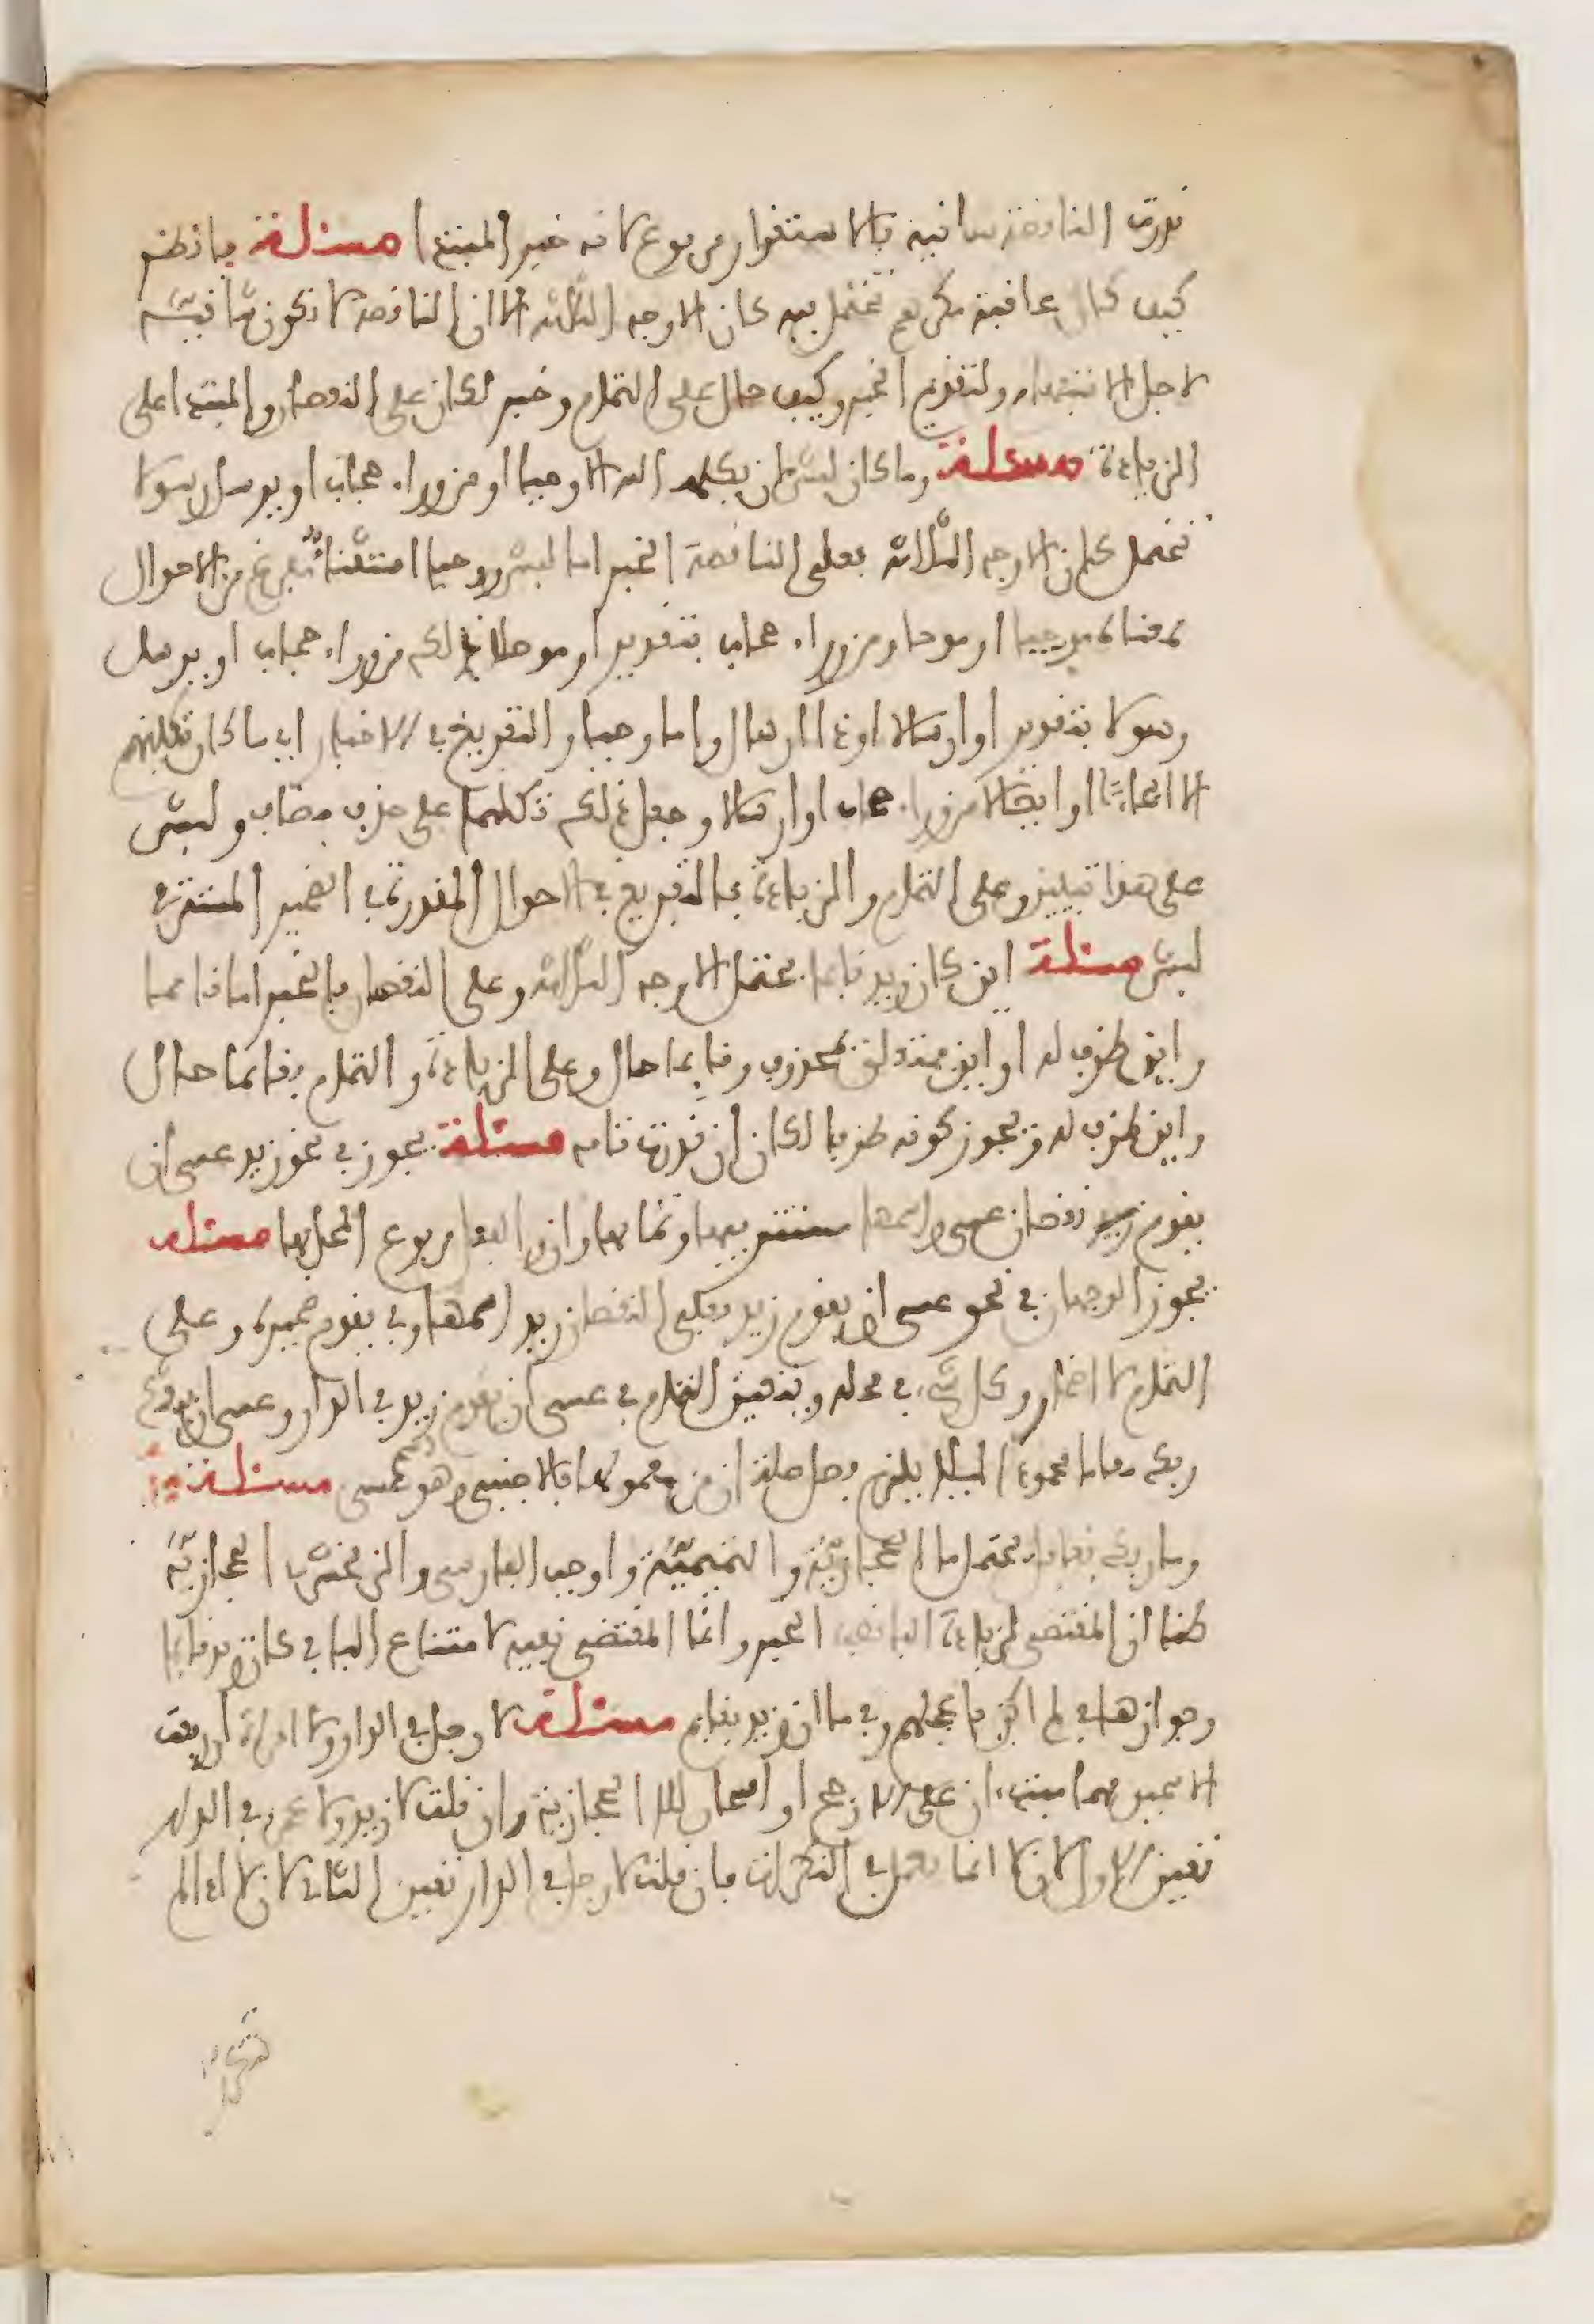 قدرت الناقصة شانية فالاستقرار مرفوع لانه خبر المبتدا مسئلة فانظر
كيف كان عاقبة مكرهم تحتمل فيه كان الاوجه الثلاثة الا ان الناقصة لا تكون شانية
لاجل الاستفهام ولتقديم الخبر وكيف حال على التمام وخبر لكان على النقصان وللمبتدا على
الزيادة مسئلة وما كان لبشر ان يكلمه الله الا وحيا او من وراء حجاب او يرسل رسولا
تحتمل كان الاوجه الثلاثة فعلى الناقصة الخبر اما لبشر ووحيا استثناء مفرغ من الاحوال
فمعناه موحيا او موحا او من وراء حجاب بتقدير او موصلا ذلك من وراء حجاب او يرسل
رسولا بتقدير او ارسالا او ذا ارسال واما وحيا والتفريغ في الاخبار اي ما كان تكليمهم
الا ايحاءا او ايصالا من وراء حجاب او ارسالا وجعل ذلك تكليما على حذف مضاف ولبشر
على هذا تبيين وعلى التمام والزيادة فالتفريغ في الاحوال المقدرة في الضمير المستتر في
لبشر مسئلة اين كان زيد قايما يحتمل الاوجه الثلاثة وعلى النقصان فالخبر اما قايما
واين ظرف له او اين فمتعلق بمحذوف وقايما حال وعلى الزيادة والتمام فقايما حال
واين ظرف له ويجوز كونه ظرفا لكان ان قدرت تامة مسئلة يجوز في نحو زيد عسى ان
يقوم نقصان عسى واسمها مستتر فيها وتمامها وان والفعل مرفوع المحل بها مسئلة
يجوز الوجهان في نحو عسى ان يقوم زيد فعلى النقصان زيد اسمها وفي يقوم ضميره وعلى
التمام لا اضمار وكل شيء في محله ويتعين التمام في عسى ان يقوم زيد في الدار وعسى ان يبعثك
ربك مقاما محمودا ليلا يلزم فصل صلة ان من معمولها بالاجنبي وهو اسم عسى مسئلة
وما ربك بغافل يحتمل ما الحجازية والتميمية واوجب الفارسي والزمخشري الحجازية
ظنا ان المقتضي لزيادة الباء نصب الخبر وانما المقتضي نفيه لامتناع الباء في كان زيد قايما
وجوازها في لم اكن باعجلهم وفي ما ان زيد بقايم مسئلة لا رجل في الدار ولا امراة ان رفعت
الاسمين فهما مبتدءان على الارجح او اسمان للا الحجازية وان قلت لا زيد ولا عمرو في الدار
تعين الاول لان لا انما تعمل في النكرات فان قلت لا رجل في الدار تعين الثاني لان لا اذا لم
تتكرر